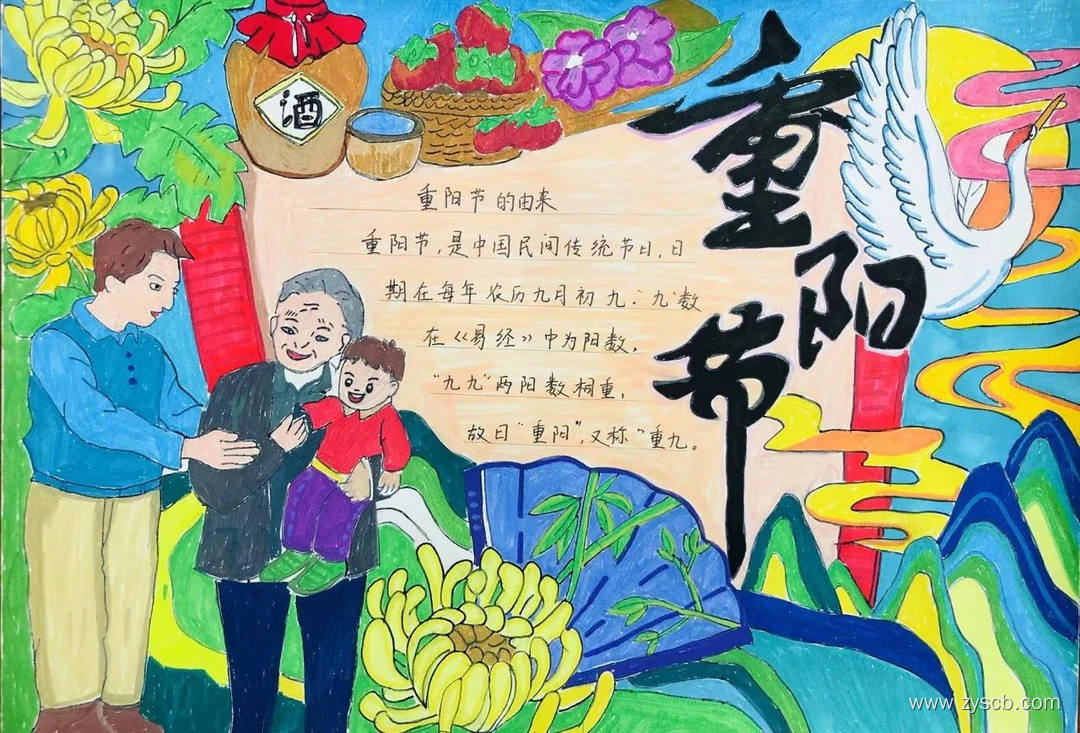 酒
重阳节
重阳节的由来
重阳节,是中国民间传统节日,日
期在每年农历九月初九。“九”数
在《易经》中为阳数,
“九九”两阳数相重,
故日“重阳”,又称“重九。
www.zyscb.com